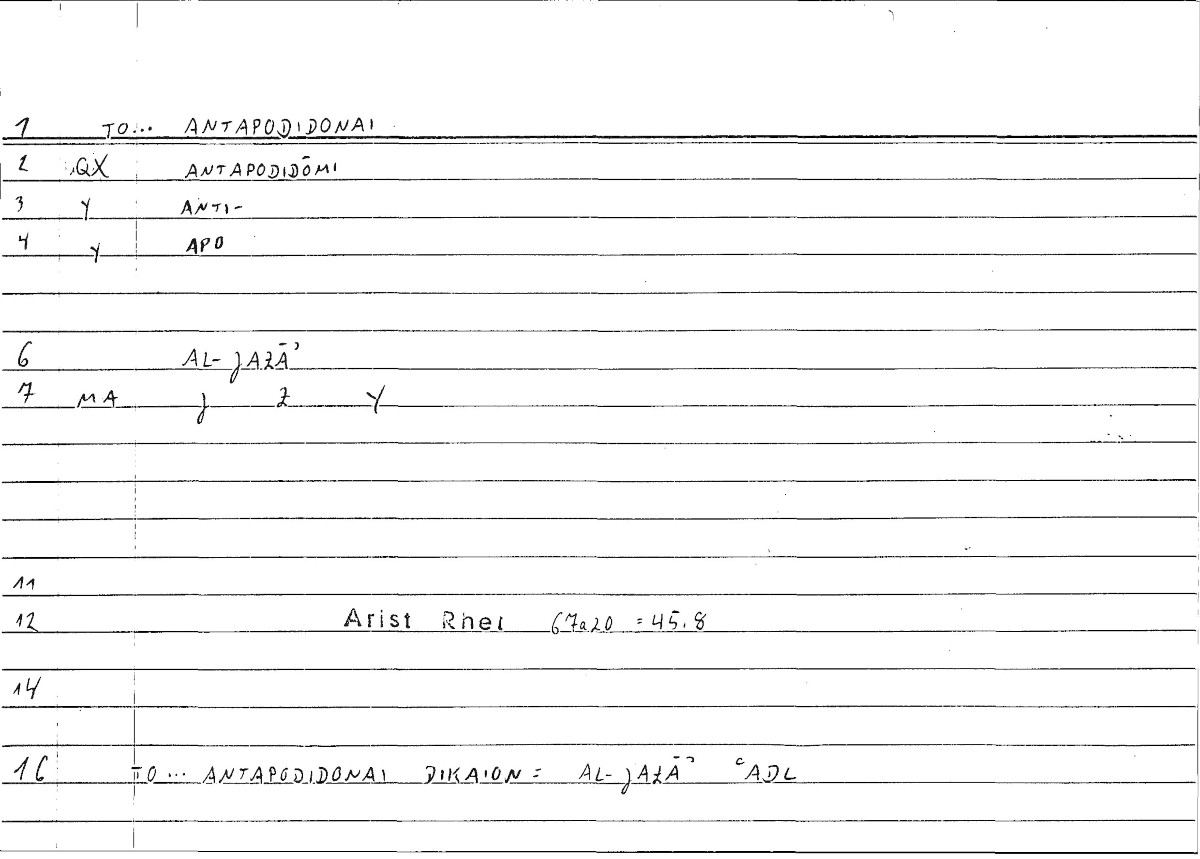 1 TO... ANTAPODIDONAI
2 QX ANTAPODIDŌMI
3 Y ANTI-
4 Y APO
6 AL-JAZĀʾ
7 MA J Z Y
11
12 Arist Rhet 67a20 = 45.8
14
16 TO... ANTAPODIDONAI DIKAION = AL-JAZĀʾ ʿADL